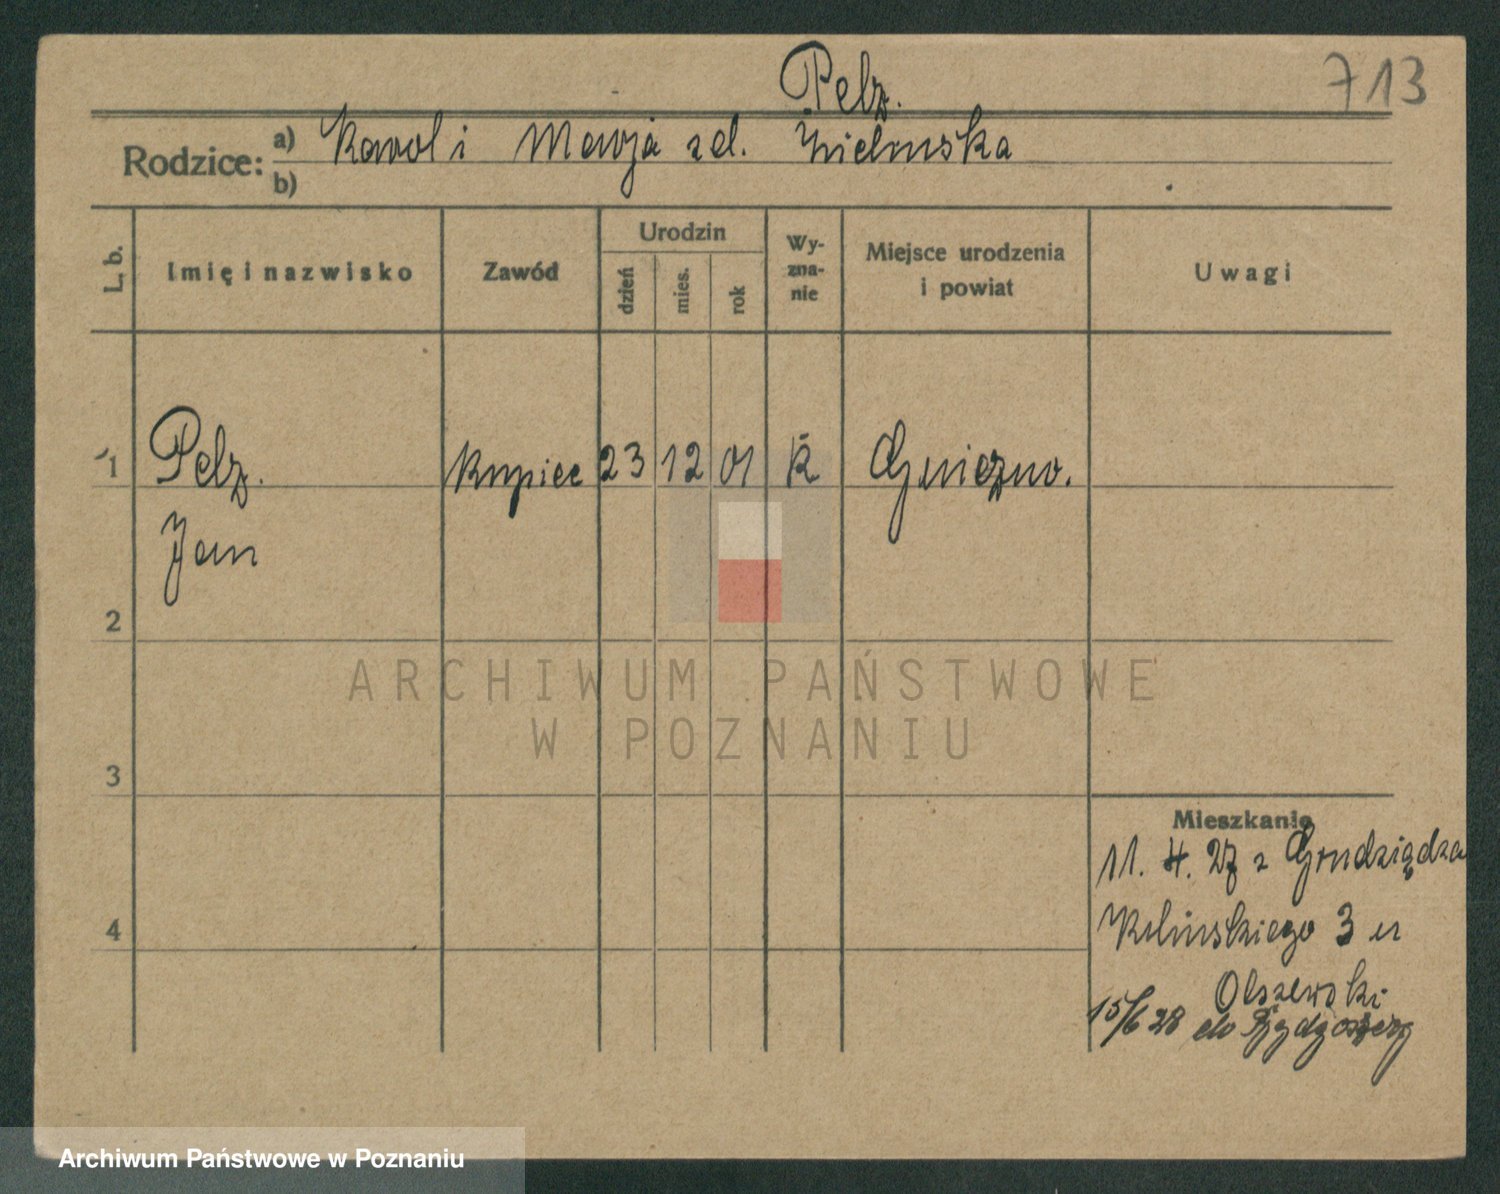 Pelz.
713
Rodzice: a) Karol i Marja zd. Zielinska
b)
L. b.
Imię i nazwisko
Zawód
Urodzin
dzień
mies.
rok
Wy-
zna-
nie
Miejsce urodzenia
i powiat
Uwagi
1 Pelz. kupiec 23 12 01 k Gniezno.
Jan
2
3
4
Mieszkanie
11. 4. 27 z Grudziądza
Kilinskiego 3 u
Olszewski
15/6 28 do Bydgoszczy
ARCHIWUM PAŃSTWOWE
W POZNANIU
Archiwum Państwowe w Poznaniu